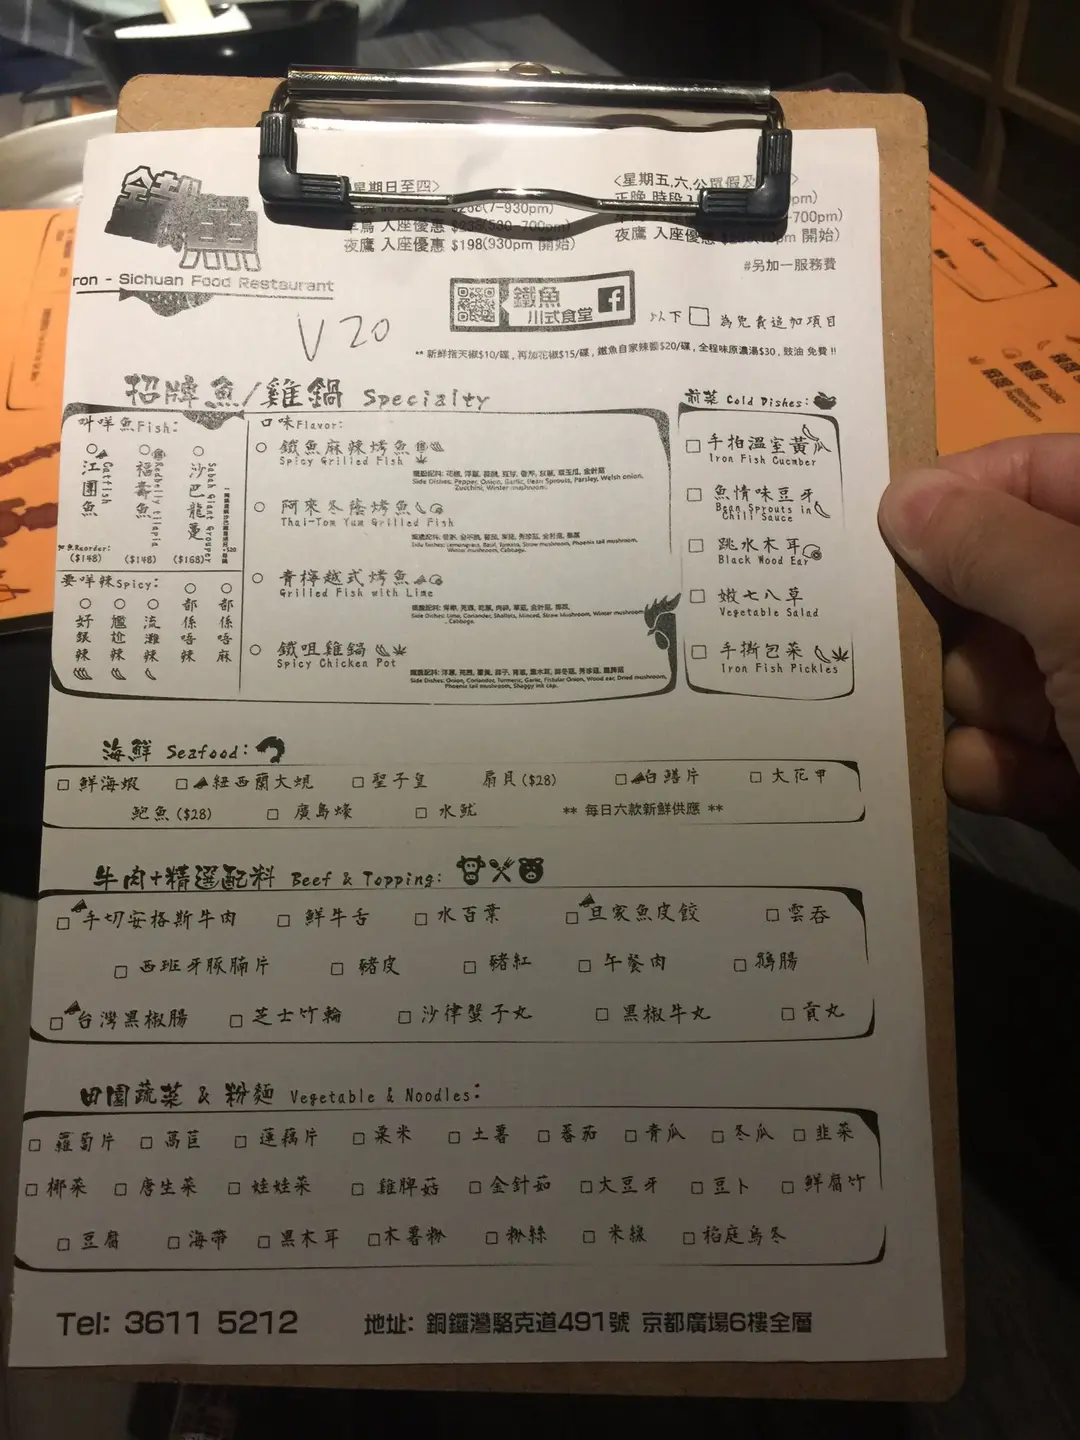 鐵魚
ron - Sichuan Food Restaurant
星期日至四>
(7-930pm)
入座優惠
夜鷹 入座優惠 $198(930pm 開始)
<星期五,六,公眾假及
正晚 時段入
-700pm)
夜鷹 入座優惠
pm 開始)
#另加一服務費
鐵魚
川式食堂
f
V20
以下 □ 為免費追加項目
** 新鮮指天椒$10/碟 , 再加花椒$15/碟 , 鐵魚自家辣醬$20/碟 , 全程味原濃湯$30 , 豉油 免費 !!
招牌魚/雞鍋 Specialty
叫咩魚Fish:
○ 江團魚 Catfish
○ 福壽魚 Redbelly tilapia
○ 沙巴龍躉 Sabah Giant Grouper
Reorder:
($148)
($148)
($168)
要咩辣Spicy:
○ 好銀辣
○ 尷尬辣
○ 流灘辣
○ 都係唔辣
○ 都係唔麻
口味Flavor:
○ 鐵魚麻辣烤魚
Spicy Grilled Fish
Side Dishes: Pepper, Onion, Garlic, Bean Sprouts, Parsley, Welsh onion,
Zucchini, Winter mushroom.
○ 阿來冬蔭烤魚
Thai-Tom Yum Grilled Fish
Side Dishes: Lemongrass, Basil, Tomato, Straw mushroom, Phoenix tail mushroom,
Winter mushroom, Cabbage.
○ 青檸越式烤魚
Grilled Fish with Lime
Side Dishes: Lime, Coriander, Shallots, Minced, Straw Mushroom, Winter mushroom
, Cabbage.
○ 鐵咀雞鍋
Spicy Chicken Pot
Side Dishes: Onion, Coriander, Turmeric, Garlic, Fistular Onion, Wood ear, Dried mushroom,
Phoenix tail mushroom, Shaggy ink cap.
前菜 Cold Dishes:
□ 手拍溫室黃瓜
Iron Fish Cucmber
□ 魚情味豆牙
Bean Sprouts in
Chili Sauce
□ 跳水木耳
Black Wood Ear
□ 嫩七八草
Vegetable Salad
□ 手撕包菜
Iron Fish Pickles
海鮮 Seafood:
□ 鮮海蝦 □ 紐西蘭大蜆 □ 聖子皇 扇貝($28) □ 白鱔片 □ 大花甲
鮑魚($28) □ 廣島蠔 □ 水魷 ** 每日六款新鮮供應 **
牛肉+精選配料 Beef & Topping:
□ 手切安格斯牛肉 □ 鮮牛舌 □ 水百葉 □ 旦家魚皮餃 □ 雲吞
□ 西班牙豚腩片 □ 豬皮 □ 豬紅 □ 午餐肉 □ 鵝腸
□ 台灣黑椒腸 □ 芝士竹輪 □ 沙律蟹子丸 □ 黑椒牛丸 □ 貢丸
田園蔬菜 & 粉麵 Vegetable & Noodles:
□ 蘿蔔片 □ 萵苣 □ 蓮藕片 □ 粟米 □ 土薯 □ 蕃茄 □ 青瓜 □ 冬瓜 □ 韭菜
□ 椰菜 □ 唐生菜 □ 娃娃菜 □ 雞脾菇 □ 金針茹 □ 大豆牙 □ 豆卜 □ 鮮腐竹
□ 豆腐 □ 海帶 □ 黑木耳 □ 木薯粉 □ 粉絲 □ 米線 □ 稻庭烏冬
Tel: 3611 5212 地址: 銅鑼灣駱克道491號 京都廣場6樓全層